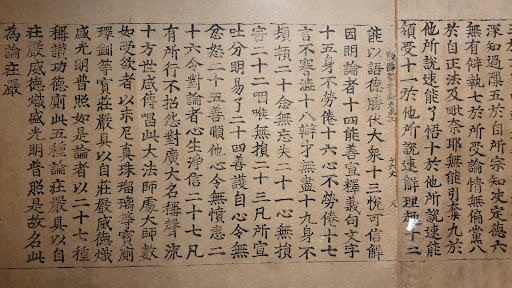 深知過隟五於自所宗知決定德六
無有僻執七於所受論情無偏黨八
於自正法及毗奈耶無能引奪九於
他所說速能了悟十於他所說速能
領受十一於他所說速能辯理趣十二
能以語德勝伏大衆十三悅可信解
因明論者十四能善宣釋義句文字
十五身不勞倦十六心不勞倦十七
言不謇澁十八辯才無盡十九身不
頓顇二十念無忘失二十一心無損
害二十二咽喉無損二十三凡所宣
吐分明易了二十四善護自心令無
忿怒二十五善順他心令無憤恚二
十六令對論者心生淨信二十七凡
有所行不招怨對廣大名稱聲流
十方世咸傳唱此大法師處大師數
如受欲者以末尼真珠瑠璃等寶廁
環釧等寶莊嚴具以自莊嚴威德熾
盛光明普照如是論者以二十七種
稱讚功德廁此五種論莊嚴具以自
莊嚴威德熾盛光明普照是故名此
為論莊嚴